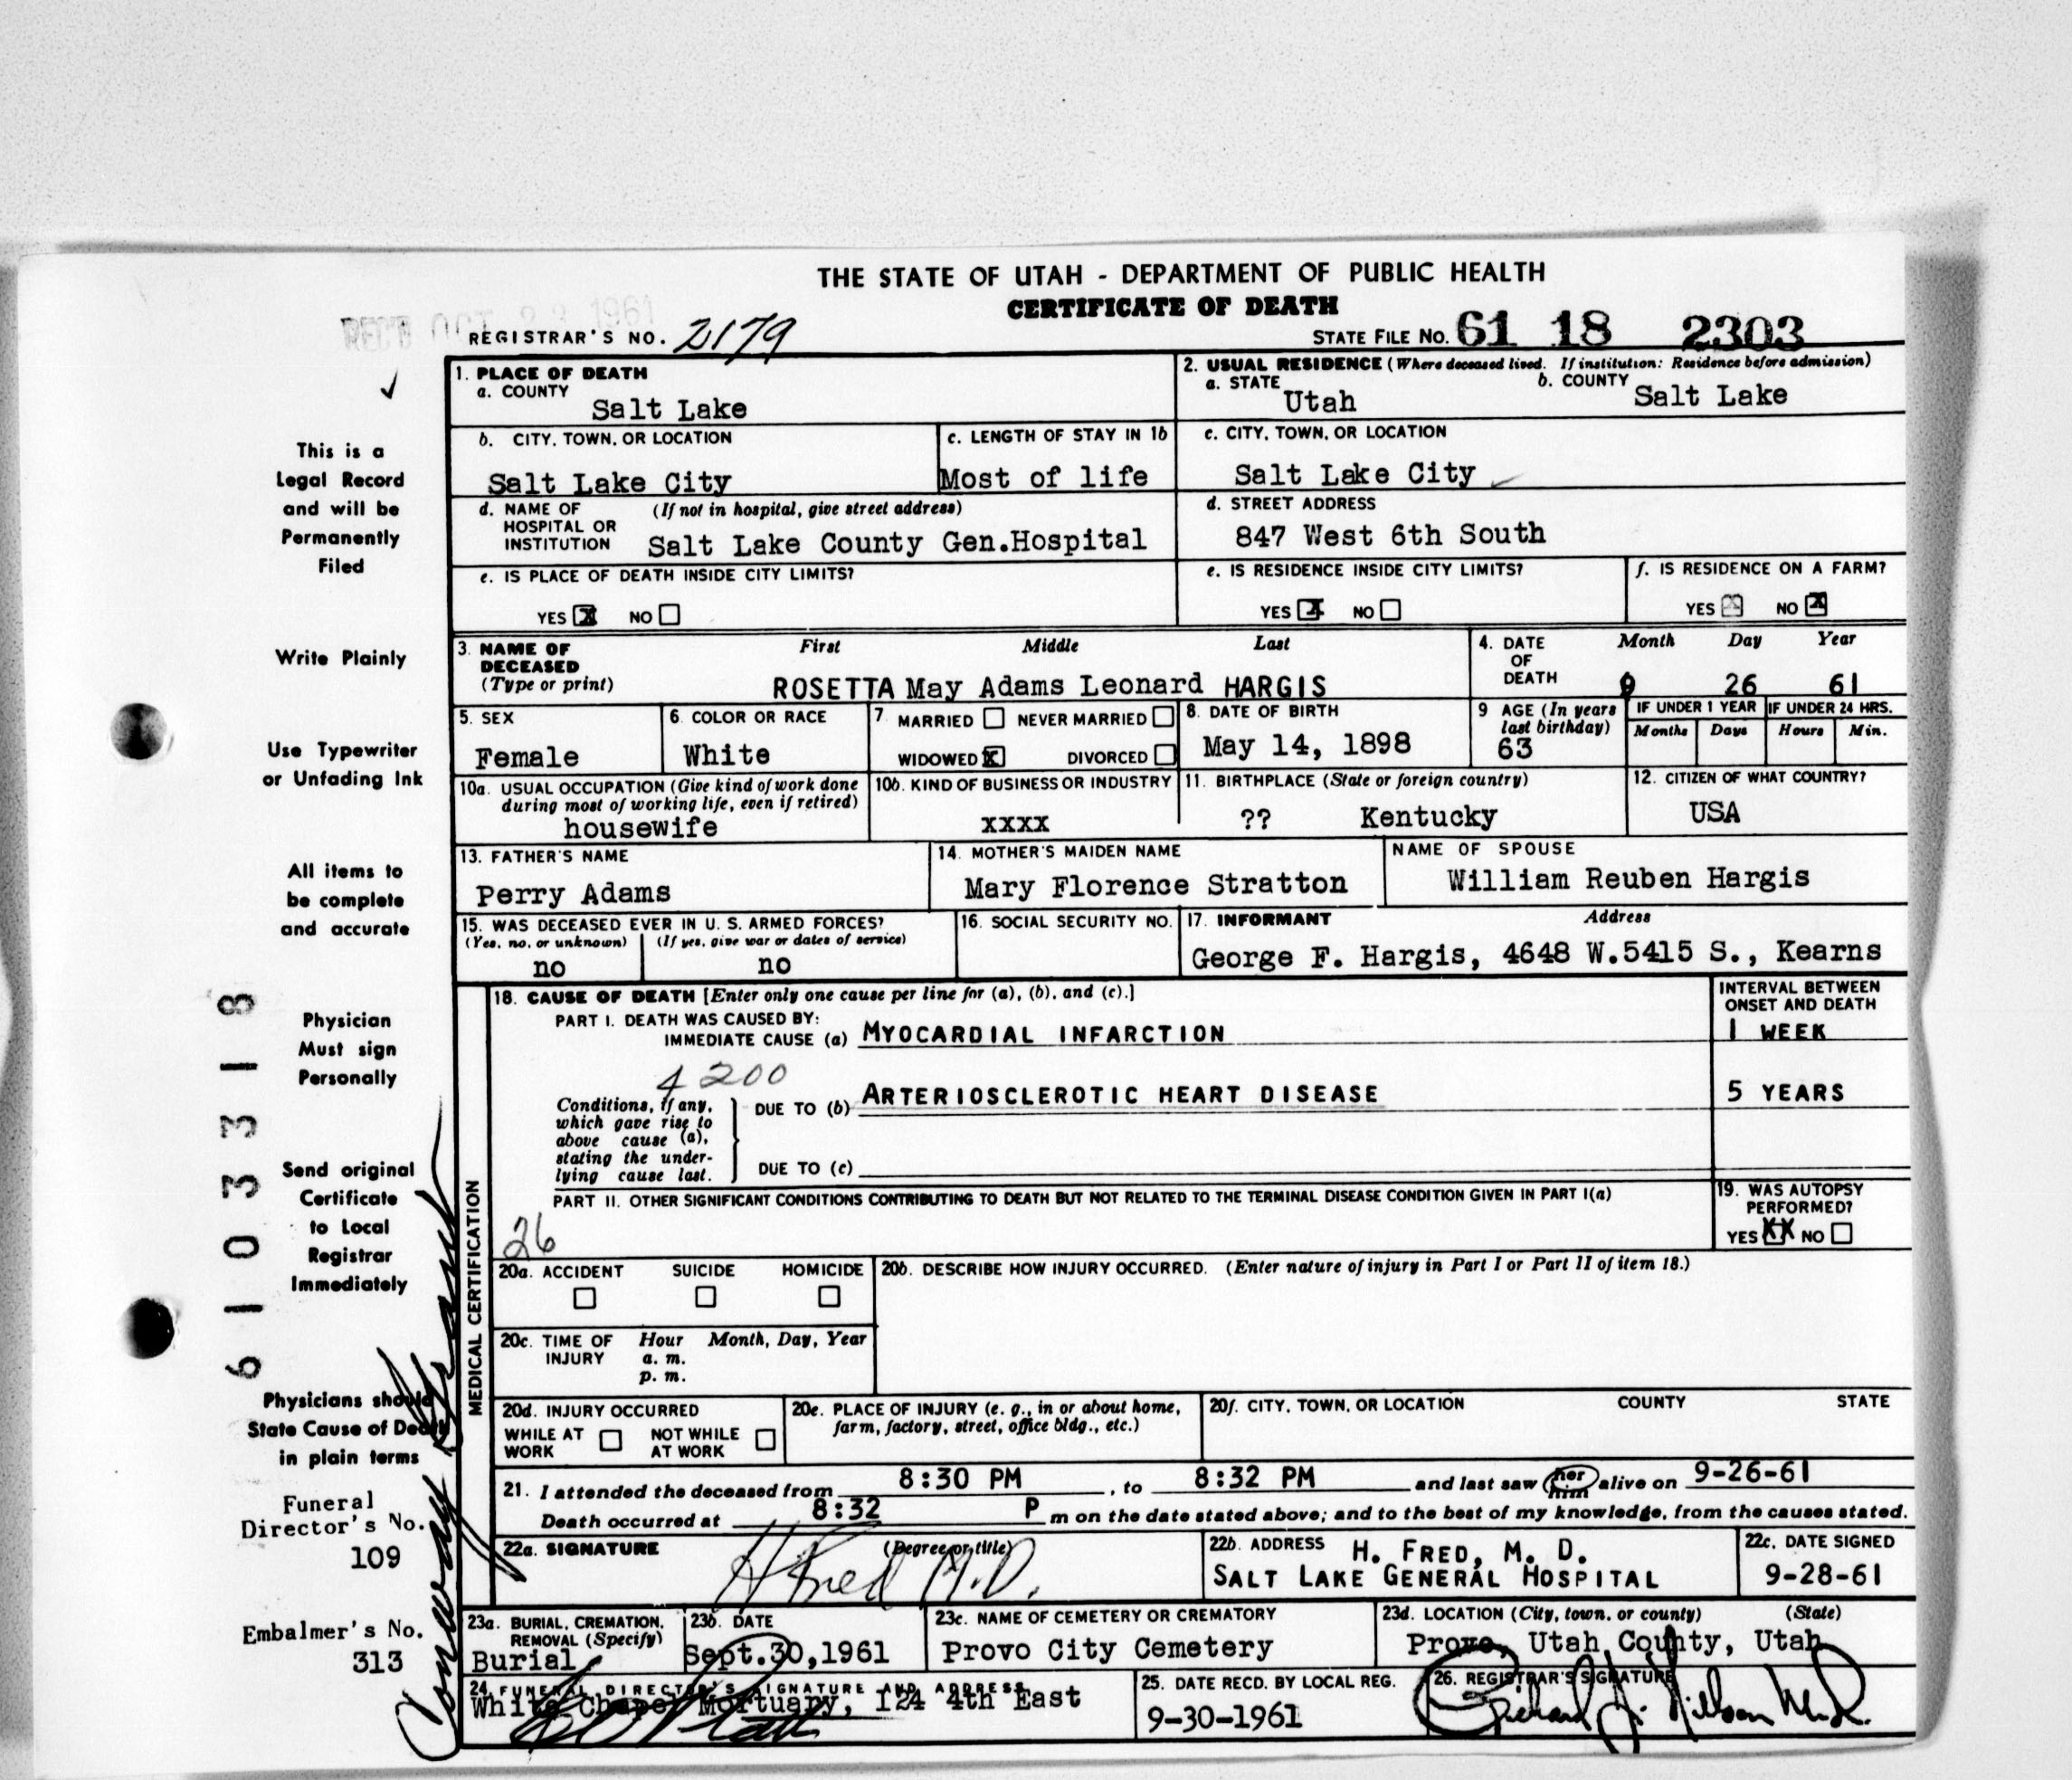 THE STATE OF UTAH - DEPARTMENT OF PUBLIC HEALTH
CERTIFICATE OF DEATH
REC'D OCT 23 1961
REGISTRAR'S NO. 2179
STATE FILE NO. 61 18 2303
This is a
Legal Record
and will be
Permanently
Filed
Write Plainly
Use Typewriter
or Unfading Ink
All items to
be complete
and accurate
Physician
Must sign
Personally
Send original
Certificate
to Local
Registrar
Immediately
Physicians should
State Cause of Death
in plain terms
Funeral
Director's No.
109
Embalmer's No.
313
6103318
1. PLACE OF DEATH
a. COUNTY
Salt Lake
2. USUAL RESIDENCE (Where deceased lived. If institution: Residence before admission)
a. STATE Utah b. COUNTY Salt Lake
b. CITY, TOWN, OR LOCATION
Salt Lake City
c. LENGTH OF STAY IN 1b
Most of life
c. CITY, TOWN, OR LOCATION
Salt Lake City
d. NAME OF (If not in hospital, give street address)
HOSPITAL OR
INSTITUTION Salt Lake County Gen.Hospital
d. STREET ADDRESS
847 West 6th South
e. IS PLACE OF DEATH INSIDE CITY LIMITS?
YES X NO
e. IS RESIDENCE INSIDE CITY LIMITS?
YES X NO
f. IS RESIDENCE ON A FARM?
YES X NO X
3. NAME OF First Middle Last
DECEASED
(Type or print) ROSETTA May Adams Leonard HARGIS
4. DATE Month Day Year
OF
DEATH 9 26 61
5. SEX
Female
6. COLOR OR RACE
White
7. MARRIED NEVER MARRIED
WIDOWED X DIVORCED
8. DATE OF BIRTH
May 14, 1898
9 AGE (In years
last birthday)
63
IF UNDER 1 YEAR IF UNDER 24 HRS.
Months Days Hours Min.
10a. USUAL OCCUPATION (Give kind of work done
during most of working life, even if retired)
housewife
10b. KIND OF BUSINESS OR INDUSTRY
XXXX
11. BIRTHPLACE (State or foreign country)
?? Kentucky
12. CITIZEN OF WHAT COUNTRY?
USA
13. FATHER'S NAME
Perry Adams
14. MOTHER'S MAIDEN NAME
Mary Florence Stratton
NAME OF SPOUSE
William Reuben Hargis
15. WAS DECEASED EVER IN U. S. ARMED FORCES?
(Yes, no, or unknown) (If yes, give war or dates of service)
no no
16. SOCIAL SECURITY NO.
17. INFORMANT Address
George F. Hargis, 4648 W.5415 S., Kearns
MEDICAL CERTIFICATION
18. CAUSE OF DEATH [Enter only one cause per line for (a), (b), and (c).]
PART I. DEATH WAS CAUSED BY:
IMMEDIATE CAUSE (a) MYOCARDIAL INFARCTION
INTERVAL BETWEEN
ONSET AND DEATH
1 WEEK
4200
Conditions, if any,
which gave rise to
above cause (a),
stating the under-
lying cause last.
DUE TO (b) ARTERIOSCLEROTIC HEART DISEASE
5 YEARS
DUE TO (c)
PART II. OTHER SIGNIFICANT CONDITIONS CONTRIBUTING TO DEATH BUT NOT RELATED TO THE TERMINAL DISEASE CONDITION GIVEN IN PART I(a)
26
19. WAS AUTOPSY
PERFORMED?
YES XX NO
20a. ACCIDENT SUICIDE HOMICIDE
20b. DESCRIBE HOW INJURY OCCURRED. (Enter nature of injury in Part I or Part II of item 18.)
20c. TIME OF Hour Month, Day, Year
INJURY a. m.
p. m.
20d. INJURY OCCURRED
WHILE AT NOT WHILE
WORK AT WORK
20e. PLACE OF INJURY (e. g., in or about home,
farm, factory, street, office bldg., etc.)
20f. CITY, TOWN, OR LOCATION COUNTY STATE
21. I attended the deceased from 8:30 PM, to 8:32 PM and last saw her him alive on 9-26-61
Death occurred at 8:32 P m on the date stated above; and to the best of my knowledge, from the causes stated.
22a. SIGNATURE (Degree or title)
H Fred M.D.
22b. ADDRESS H. FRED, M. D.
SALT LAKE GENERAL HOSPITAL
22c. DATE SIGNED
9-28-61
23a. BURIAL, CREMATION,
REMOVAL (Specify)
Burial
23b. DATE
Sept.30,1961
23c. NAME OF CEMETERY OR CREMATORY
Provo City Cemetery
23d. LOCATION (City, town, or county) (State)
Provo, Utah County, Utah
24. FUNERAL DIRECTOR'S SIGNATURE AND ADDRESS
White Chapel Mortuary, 124 4th East
25. DATE RECD. BY LOCAL REG.
9-30-1961
26. REGISTRAR'S SIGNATURE